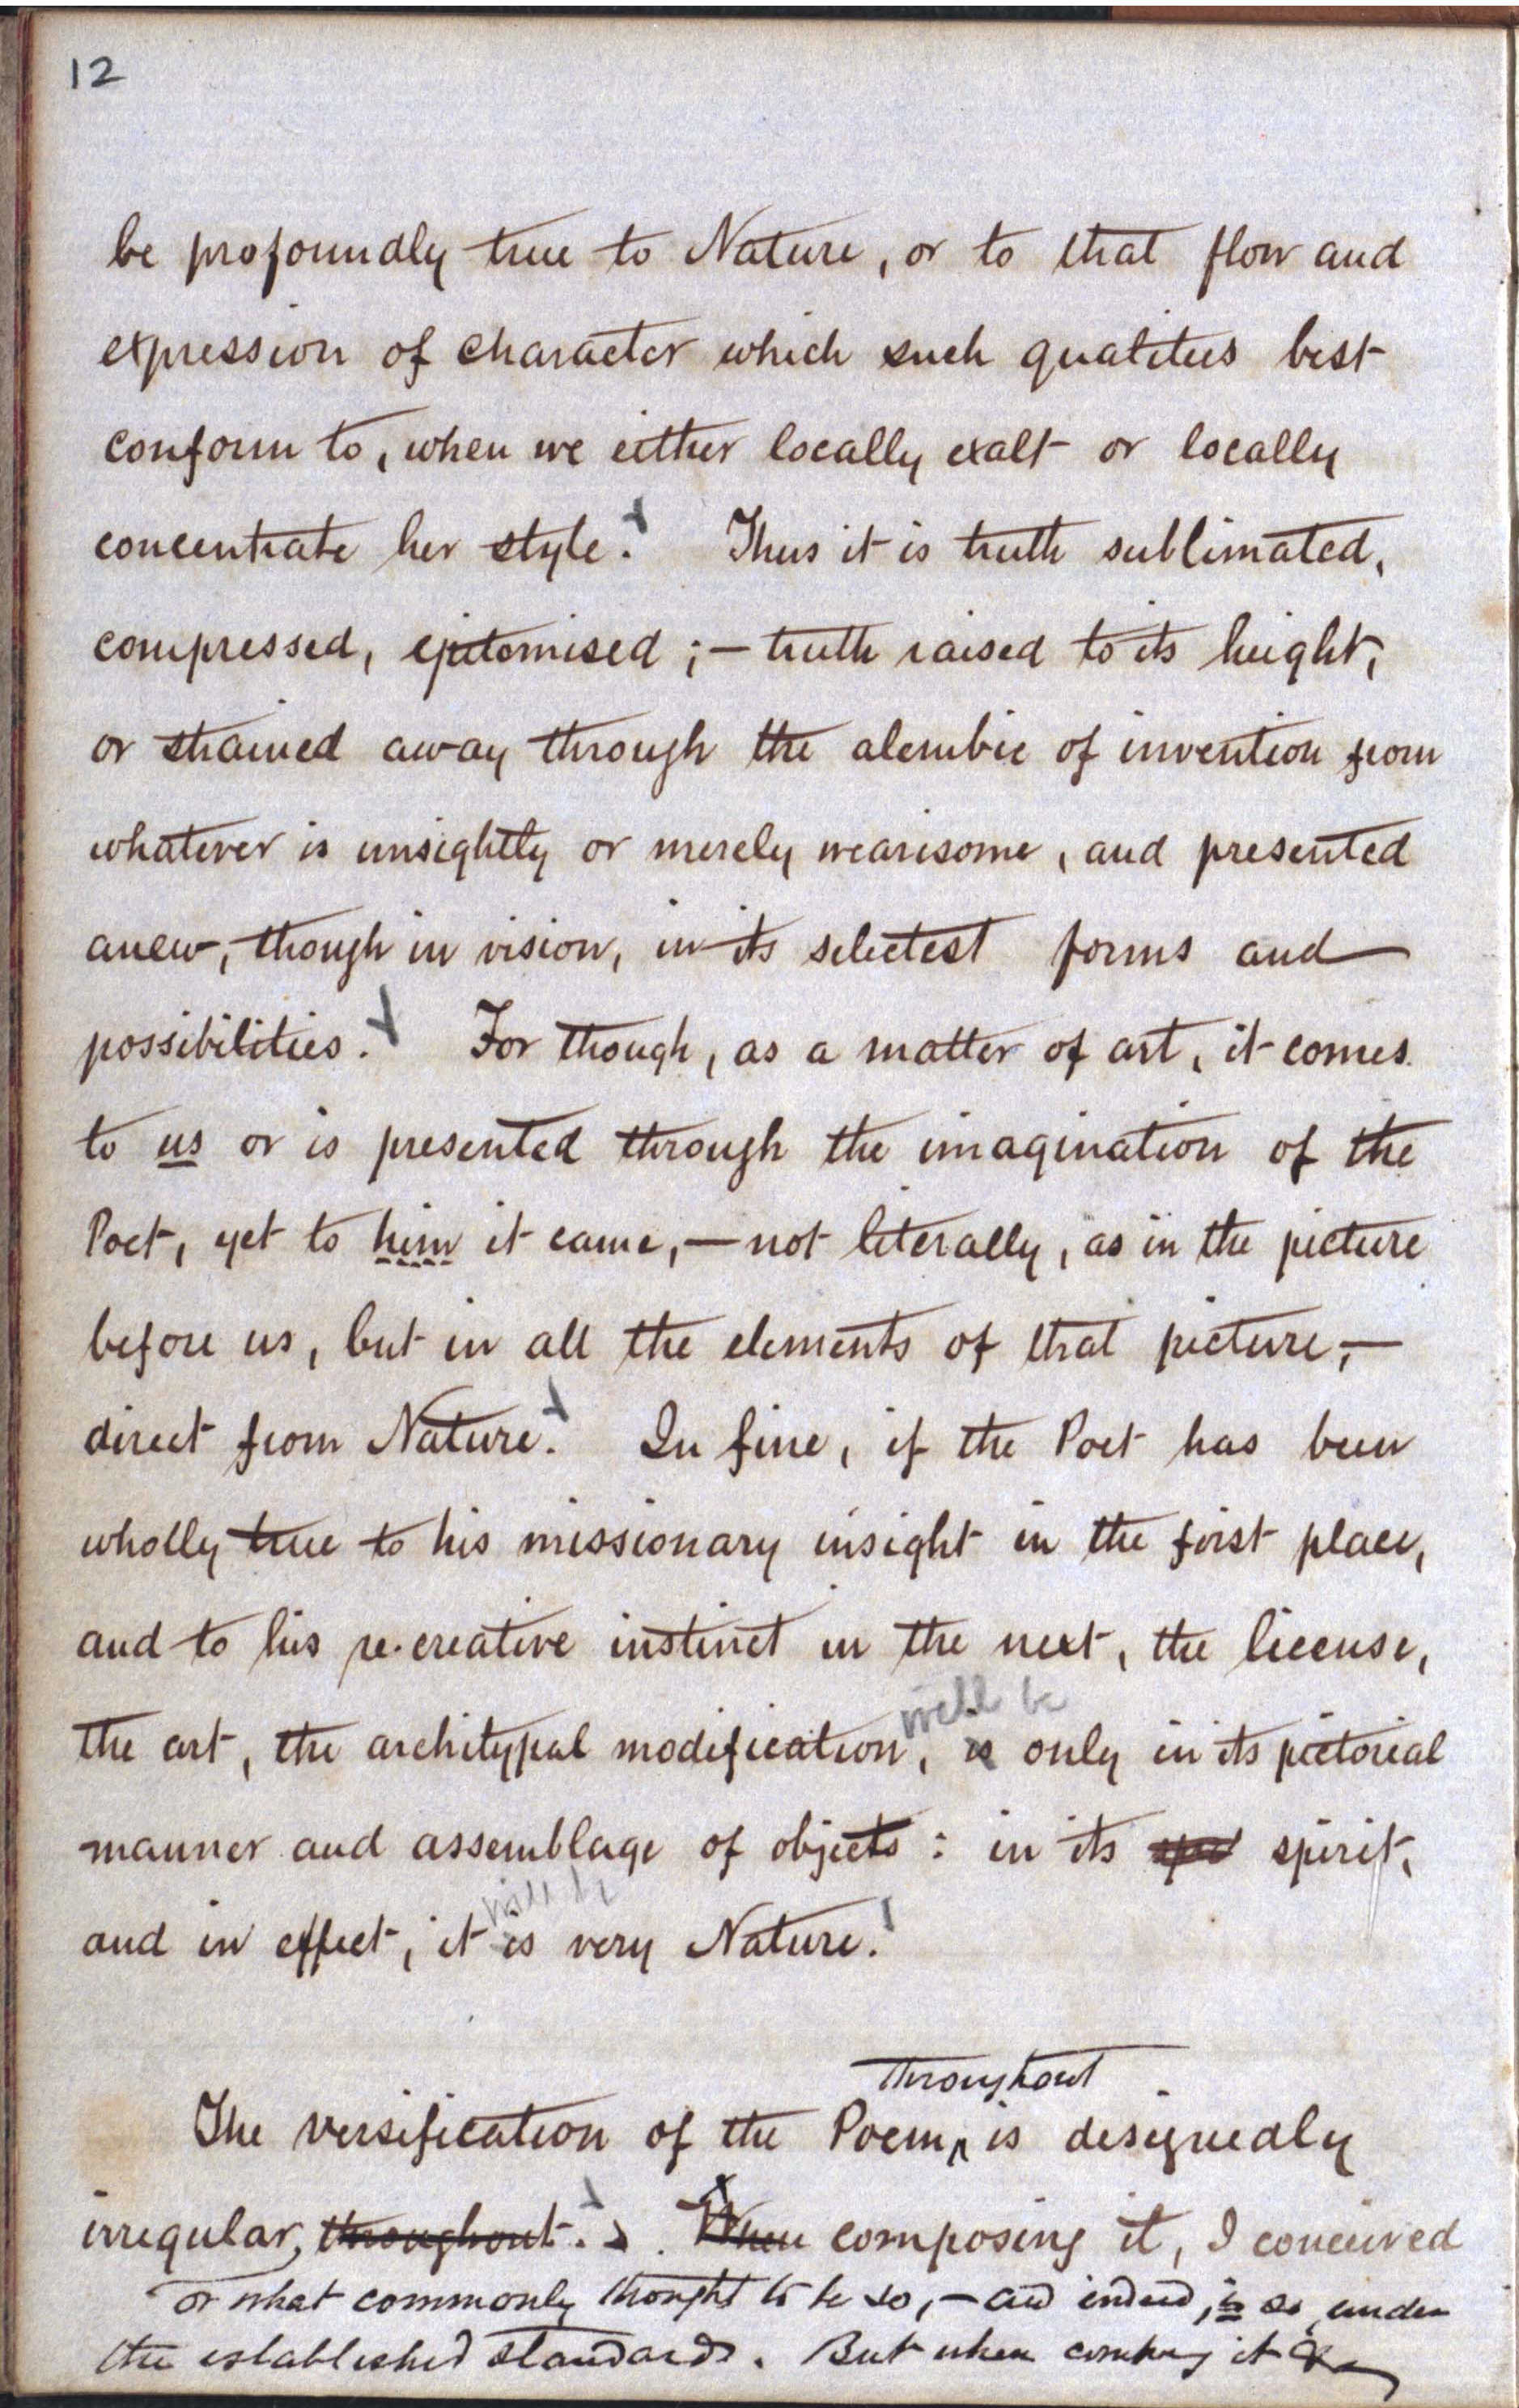 12
be profoundly true to Nature, or to that flow and
expression of character which such qualities best
conform to, when we either locally exalt or locally
concentrate her style. Thus it is truth sublimated,
compressed, epitomised ;— truth raised to its height,
or strained away through the alembic of invention from
whatever is unsightly or merely wearisome, and presented
anew, though in vision, in its selectest forms and
possibilities. For though, as a matter of art, it comes
to us or is presented through the imagination of the
Poet, yet to him it came,— not literally, as in the picture
before us, but in all the elements of that picture,—
direct from Nature. In fine, if the Poet has been
wholly true to his missionary insight in the first place,
and to his re-creative instinct in the next, the license,
will be
the art, the architypal modification, is only in its pictorial
manner and assemblage of objects : in its spirit,
will be
and in effect, it is very Nature.
throughout
The versification of the Poem is designedly
irregular, throughout. When composing it, I conceived
or what commonly thought to be so,— and indeed, is so under
the established standards. But when it &c